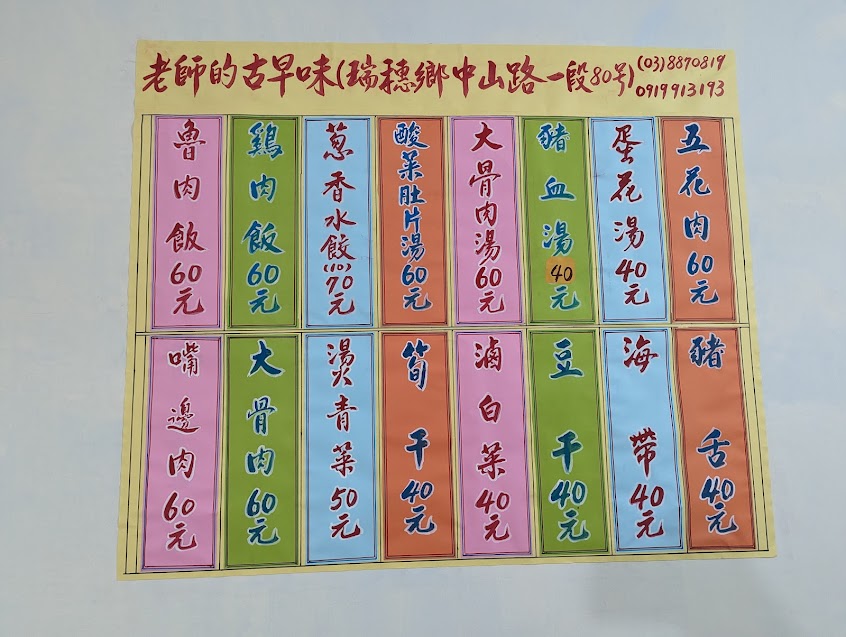 老師的古早味(瑞穗鄉中山路一段80号)
(03)8870819
0919913193
魯肉飯60元
鷄肉飯60元
蔥香水餃(10)70元
酸菜肚片湯60元
大骨肉湯60元
豬血湯40元
蛋花湯40元
五花肉60元
嘴邊肉60元
大骨肉60元
燙青菜50元
筍干40元
滷白菜40元
豆干40元
海帶40元
豬舌40元